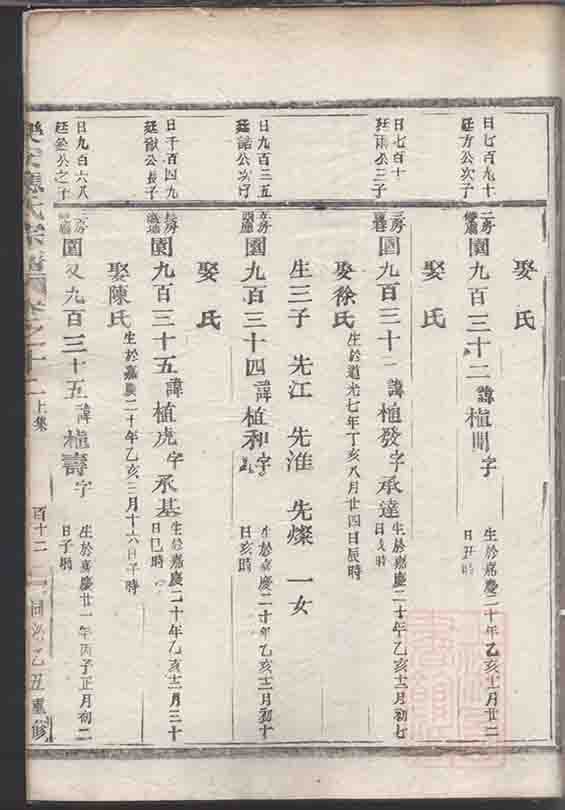 娶 氏
日七百九十
廷方公次子
二房
園九百三十二 諱植明 字
生於嘉慶二十年乙亥十二月廿二
日丑時
娶 氏
日七百十
廷雨公三子
三房
園九百三十一 諱植發 字承達
生於嘉慶二十年乙亥十二月初七
日戌時
娶徐氏 生於道光七年丁亥八月廿四日辰時
生三子 先江 先淮 先燦 一女
日九百三五
廷誥公次子
園九百三十四 諱植和 字
生於嘉慶二十年乙亥十二月初十
日亥時
娶 氏
日千百四九
廷猷公長子
長房
園九百三十五 諱植虎 字承基
生於嘉慶二十年乙亥十二月三十
日巳時
娶陳氏 生於嘉慶二十年乙亥三月十六日子時
日九百六八
三房
園又九百三十五 諱植壽 字
生於嘉慶廿一年丙子正月初二
日子時
氏宗譜 卷之十二 上集 百十二 同治乙丑重修